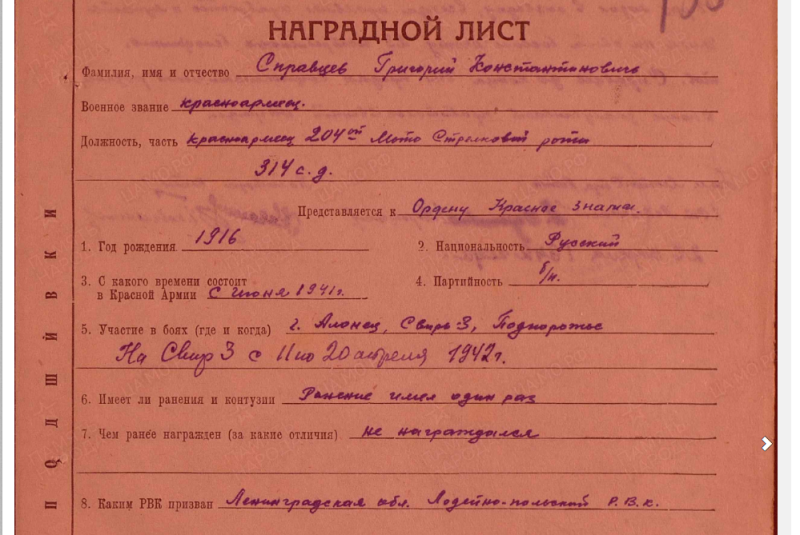 НАГРАДНОЙ ЛИСТ
Фамилия, имя и отчество Справцев Григорий Константинович
Военное звание красноармеец.
Должность, часть красноармеец 204ой Мото Стрелковой роты
314 с.д.
Представляется к Ордену Красное знамя.
1. Год рождения 1916
2. Национальность Русский
3. С какого времени состоит
в Красной Армии с июня 1941г.
4. Партийность б/п.
5. Участие в боях (где и когда) г. Алонец, Свирь 3, Подпорожье
На Свир 3 с 11 по 20 апреля 1942г.
6. Имеет ли ранения и контузии Ранение имел один раз
7. Чем ранее награжден (за какие отличия) не награждался
8. Каким РВК призван Ленинградская обл. Лодейно-польский Р.В.К.
ПОДШИВКИ